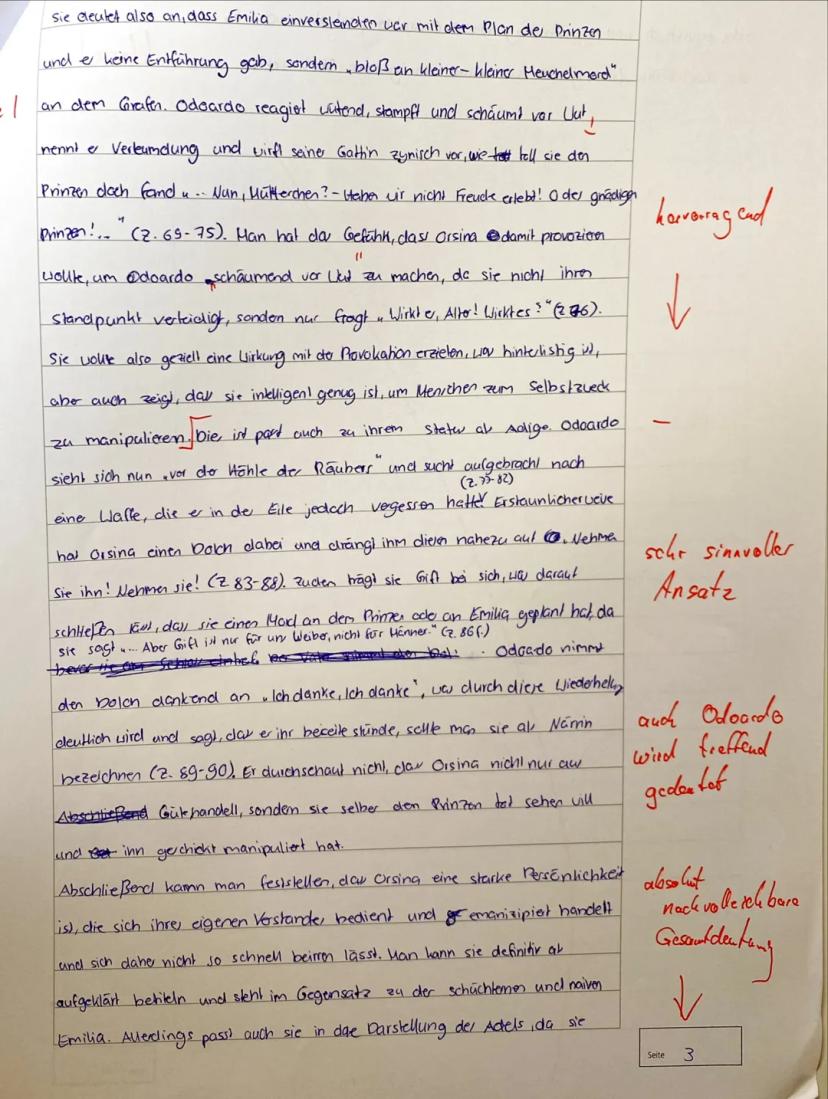 sie deutet also an, dass Emilia einverstanden war mit dem Plan des Prinzen
und es keine Entführung gab, sondern „bloß an kleiner - kleiner Meuchelmord"
an dem Grafen. Odoardo reagiert wütend, stampft und schäumt vor Wut,
nennt es Verleumdung und wirft seiner Gattin zynisch vor, wie toll sie den
Prinzen doch fand „... Nun, Mütterchen? - Haben wir nicht Freude erlebt! O des gnädigen
Prinzen!..." (Z. 69-75). Man hat das Gefühl, dass Orsina damit provozieren
hervorragend
wollte, um Odoardo „schäumend vor Wut" zu machen, da sie nicht ihren
Standpunkt verteidigt, sondern nur fragt „Wirkt es, Alter! Wirkt es?" (Z. 76).
Sie wollte also gezielt eine Wirkung mit der Provokation erzielen, was hinterlistig ist,
aber auch zeigt, das sie intelligent genug ist, um Menschen zum Selbstzweck
zu manipulieren. Die ist passt auch zu ihrem Status als Adlige. Odoardo
sieht sich nun „vor der Höhle des Räubers" und sucht aufgebracht nach
(Z. 77-82)
eine Waffe, die er in der Eile jedoch vergessen hatte! Erstaunlicherweise
hat Orsina einen Dolch dabei und drängt ihm diesen nahezu auf. Nehmen
sehr sinnvoller
Ansatz
Sie ihn! Nehmen sie! (Z. 83-88). Zudem trägt sie Gift bei sich, was darauf
schließen lässt, das sie einen Mord an den Prinzen oder an Emilia geplant hat, da
sie sagt „... Aber Gift ist nur für uns Weiber, nicht für Männer." (Z. 86f.)
. Odoardo nimmt
den Dolch dankend an „Ich danke, Ich danke", was durch diese Wiederholung
deutlich wird und sagt, das er ihr bereite stünde, sollte man sie als Närrin
auch Odoardo
wird treffend
gedeutet
bezeichnen (Z. 89-90). Er durchschaut nicht, das Orsina nicht nur aus
Abschließend Güte handelt, sondern sie selber den Prinzen tot sehen will
und ihn geschickt manipuliert hat.
Abschließend kann man feststellen, das Orsina eine starke Persönlichkeit
ist, die sich ihres eigenen Verstandes bedient und emanizipiert handelt
und sich daher nicht so schnell beirren lässt. Man kann sie definitiv als
absolut
nachvollziehbare
Gesamtdeutung
aufgeklärt betiteln und steht im Gegensatz zu der schüchternen und naiven
Emilia. Allerdings passt auch sie in die Darstellung des Adels, da sie
Seite 3